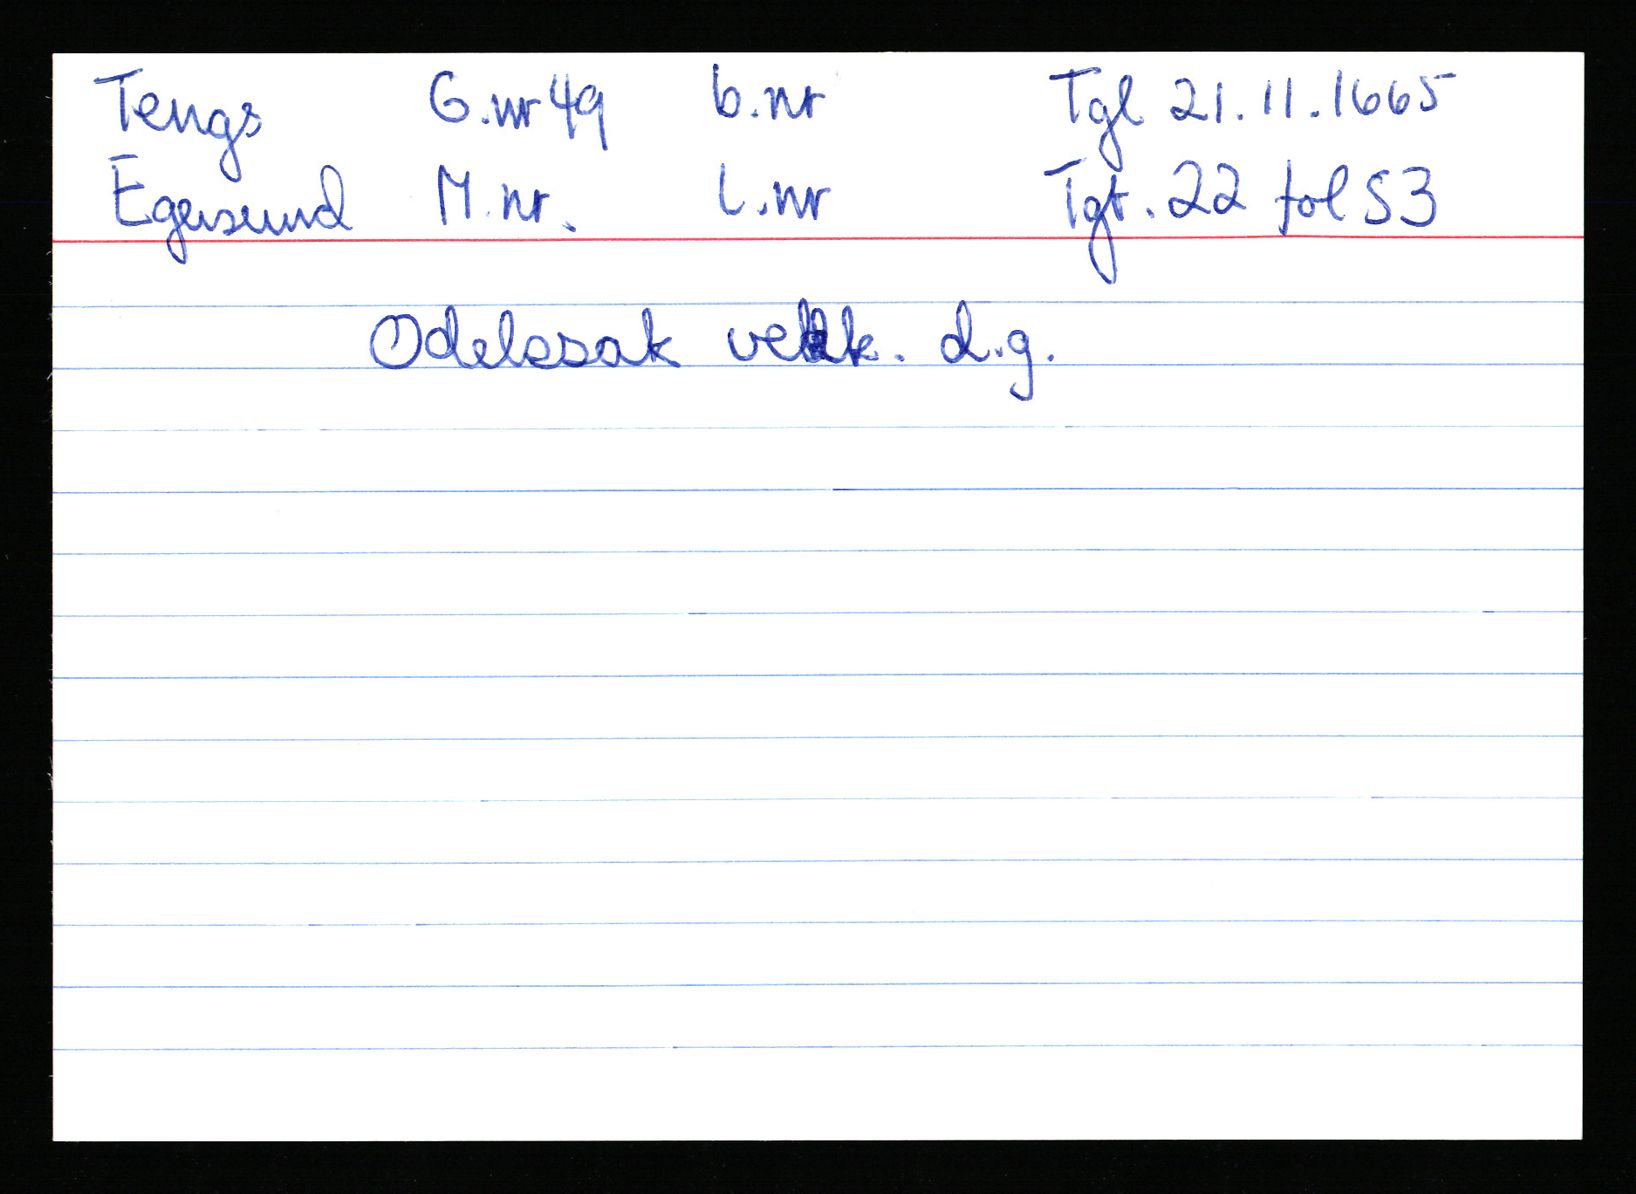 Tengs G.nr 49 b.nr Tgl 21.11.1665
Egersund M.nr. L.nr Tgt. 22 fol 53
Odelssak vedk. d.g.